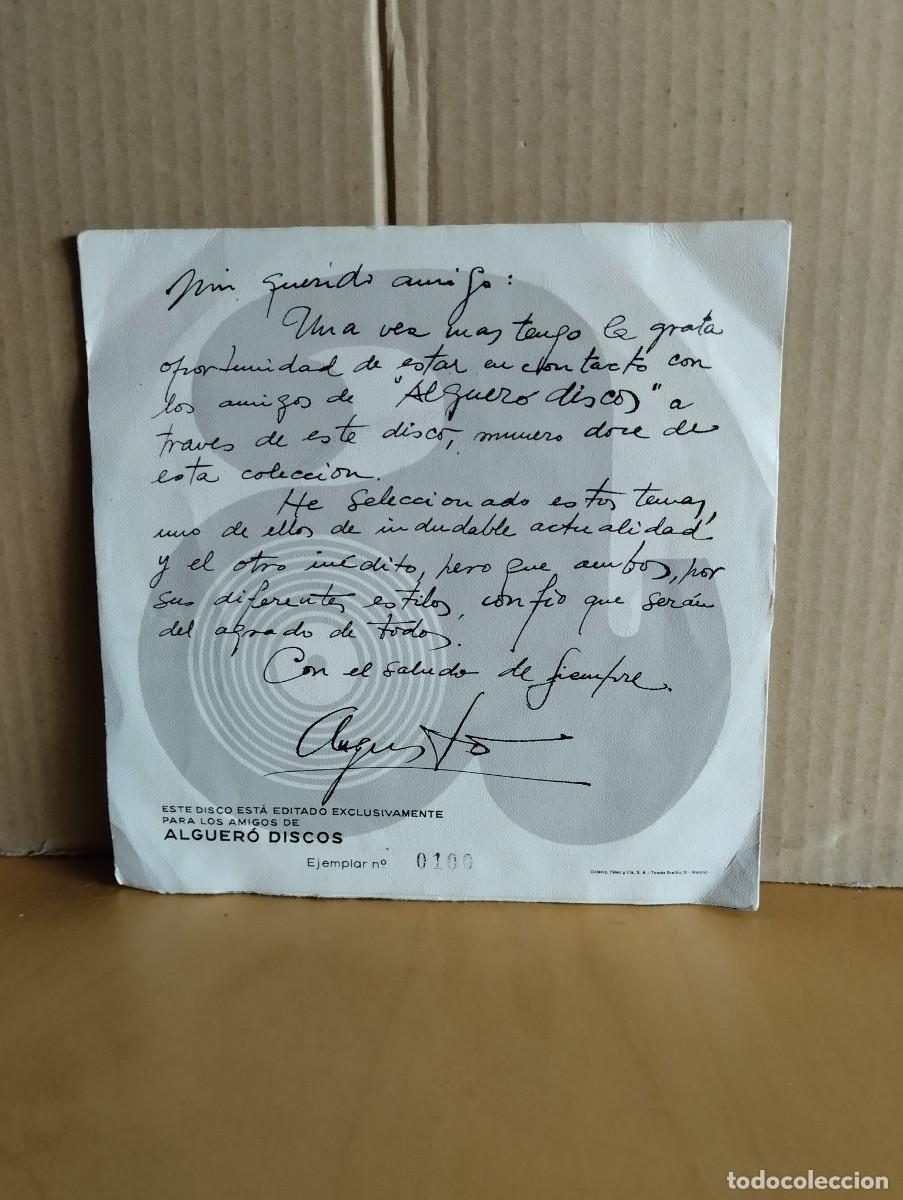 Mi querido amigo:
Una vez mas tengo la grata
oportunidad de estar en contacto con
los amigos de "Algueró discos" a
traves de este disco, numero doce de
esta coleccion.
He seleccionado estos temas,
uno de ellos de indudable actualidad
y el otro inédito, pero que ambos, por
sus diferentes estilos, confio que serán
del agrado de todos.
Con el saludo de siempre.
Augusto
ESTE DISCO ESTÁ EDITADO EXCLUSIVAMENTE
PARA LOS AMIGOS DE
ALGUERÓ DISCOS
Ejemplar nº 0100
Félez y Cía. S. A. - Tomás Bretón, 51 - Madrid
todocoleccion